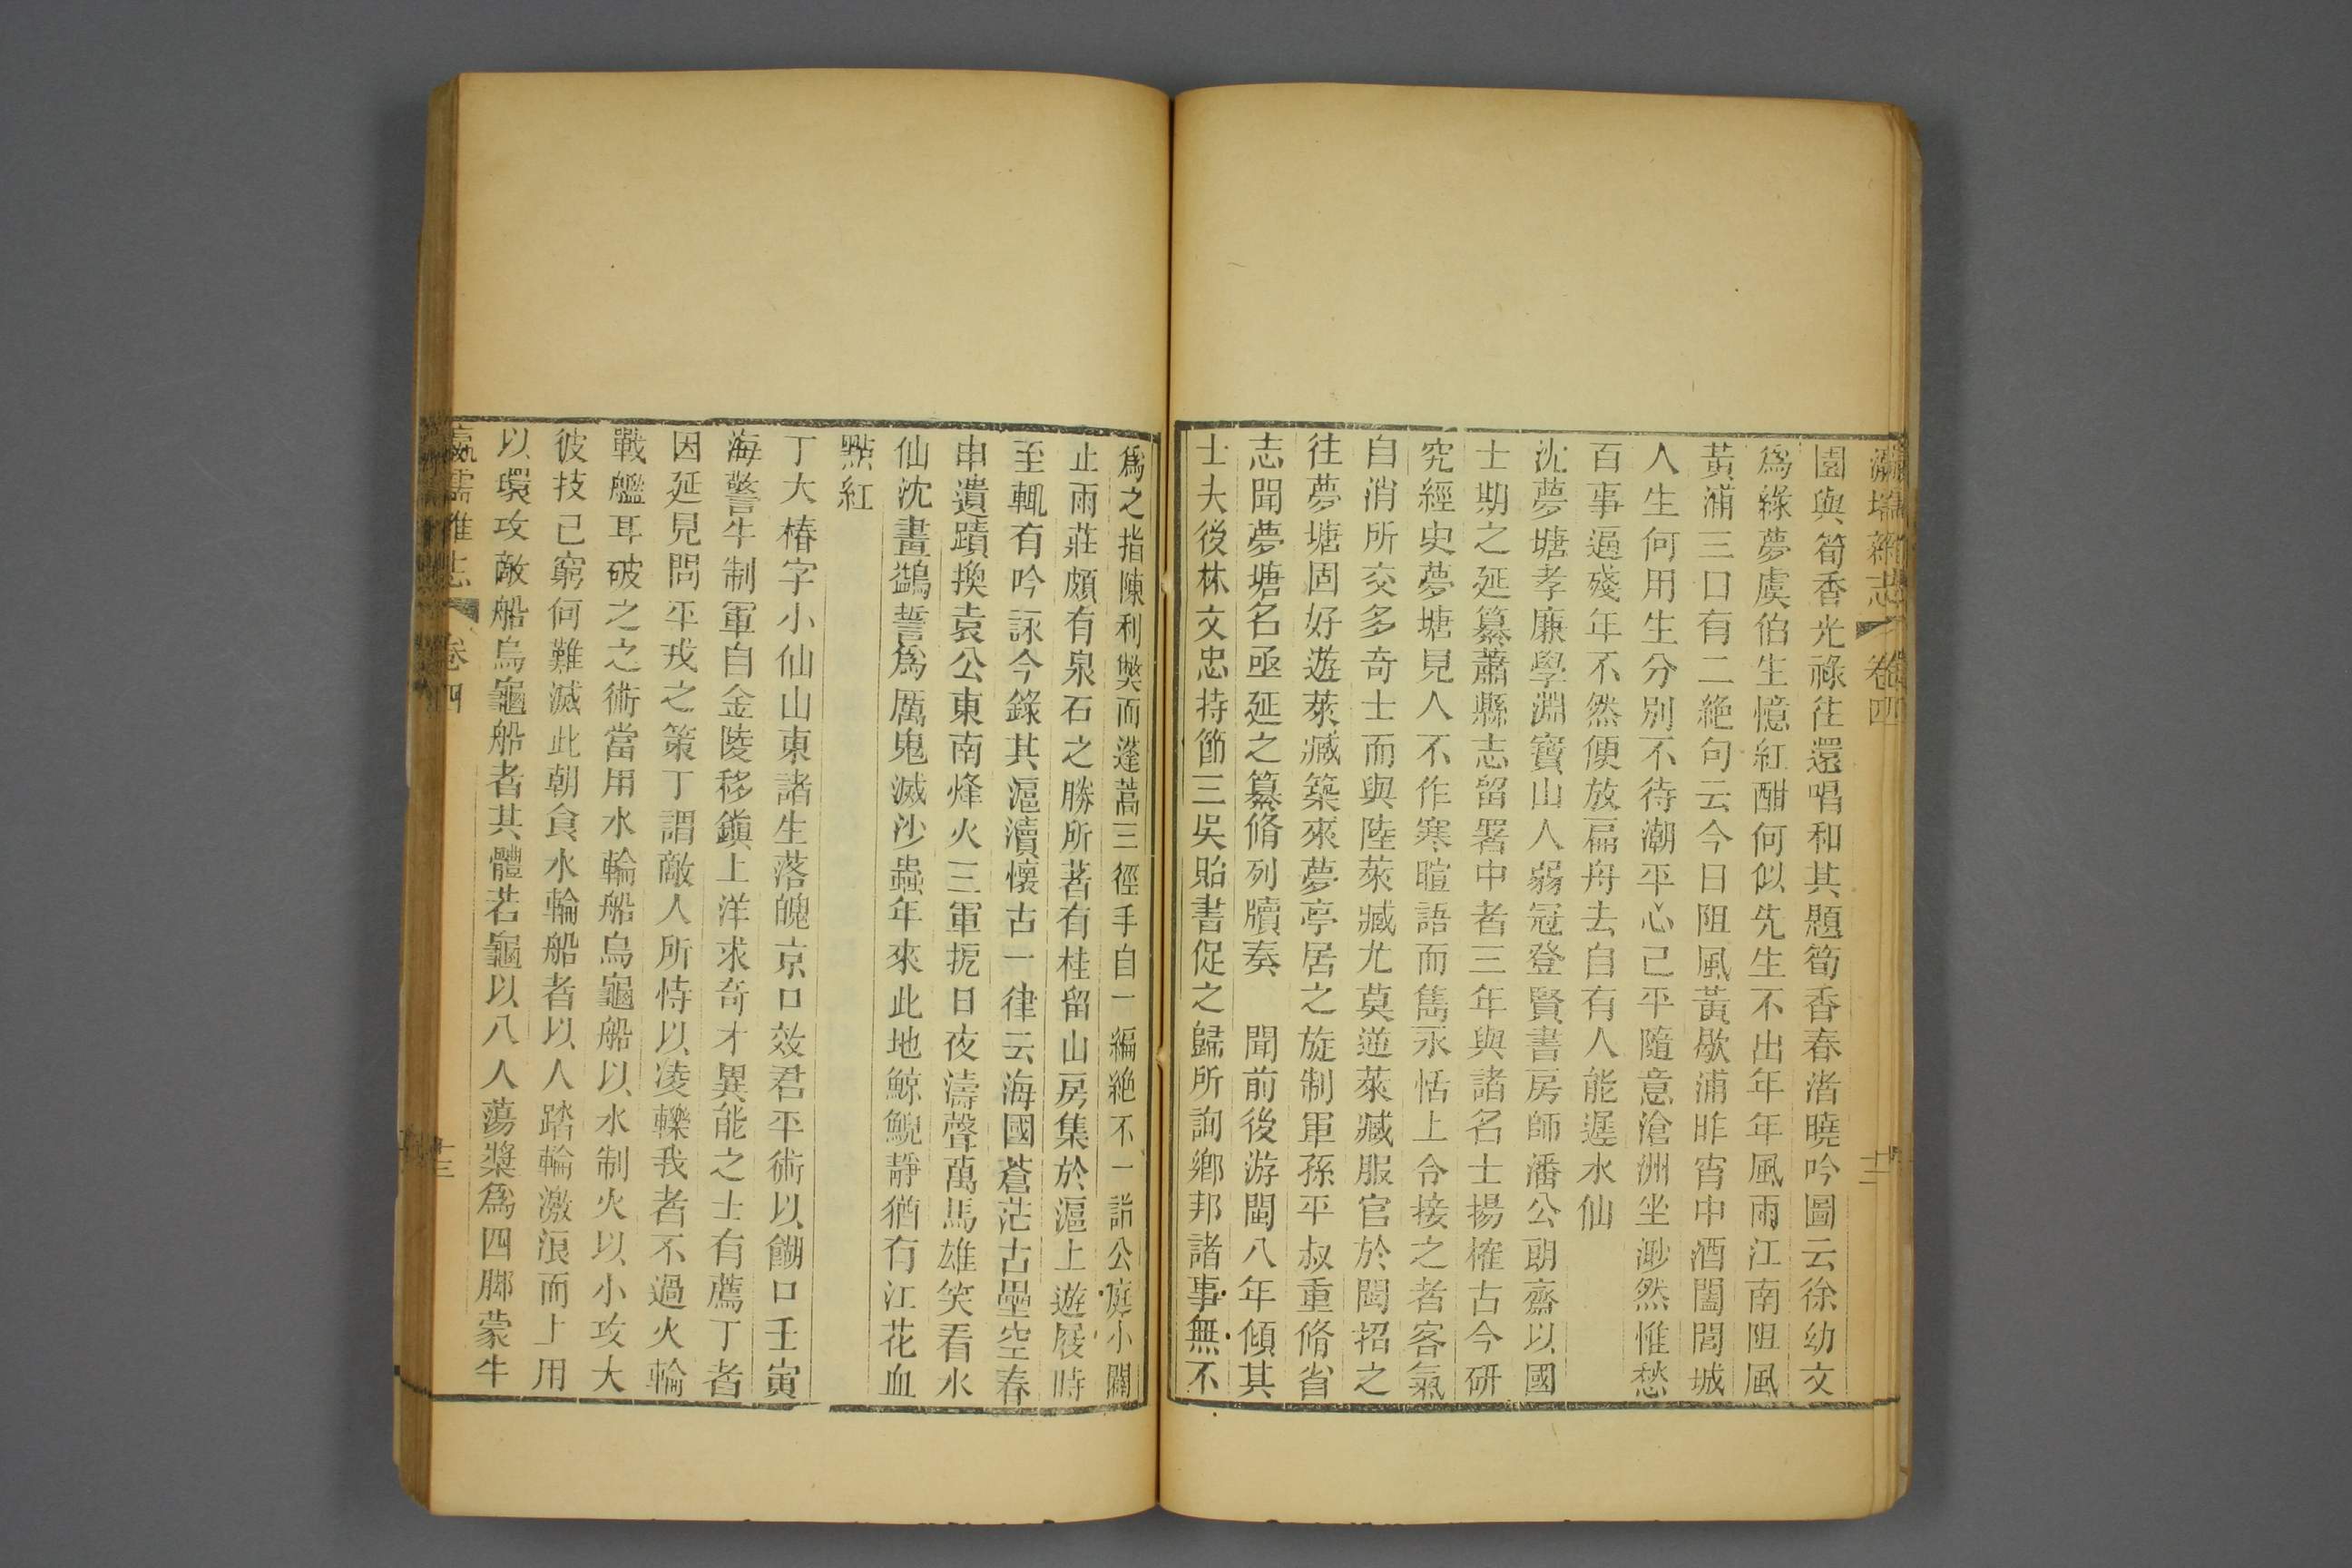 瀛壖雜志 卷四 十二
園與筍香光祿往還唱和其題筍香春渚曉吟圖云徐幼文
爲綠夢虞伯生憶紅酣何似先生不出年年風雨江南阻風
黃浦三口有二絶句云今日阻風黃歇浦昨宵中酒闔閭城
人生何用生分別不待潮平心已平隨意滄洲坐渺然惟愁
百事逼殘年不然便放扁舟去自有人能遲水仙
沈夢塘孝廉學淵寶山人弱冠登賢書房師潘公朗齋以國
士期之延纂蕭縣志留署中者三年與諸名士揚榷古今研
究經史夢塘見人不作寒暄語而雋永恬上令接之者客氣
自消所交多奇士而與陸萊臧尤莫逆萊臧服官於閩招之
往夢塘固好遊萊臧築來夢亭居之旋制軍孫平叔重脩省
志聞夢塘名亟延之纂脩列牘奏　聞前後游閩八年傾其
士夫後林文忠持節三吳貽書促之歸所詢鄉邦諸事無不
爲之指陳利獘而蓬蒿三徑手自一編絶不一詣公庭小闢
止雨莊頗有泉石之勝所著有桂留山房集於滬上遊屐時
至輒有吟詠今錄其滬瀆懷古一律云海國蒼茫古壘空春
申遺蹟換袁公東南烽火三軍扼日夜濤聲萬馬雄笑看水
仙沈畫鷁誓爲厲鬼滅沙蟲年來此地鯨鯢靜猶有江花血
點紅
丁大椿字小仙山東諸生落魄京口效君平術以餬口壬寅
海警牛制軍自金陵移鎭上洋求奇才異能之士有薦丁者
因延見問平戎之策丁謂敵人所恃以凌轢我者不過火輪
戰艦耳破之之術當用水輪船烏龜船以水制火以小攻大
彼技已窮何難滅此朝食水輪船者以人踏輪激浪而上用
以環攻敵船烏龜船者其體若龜以八人蕩槳爲四脚蒙牛
瀛壖雜志 卷四 十三